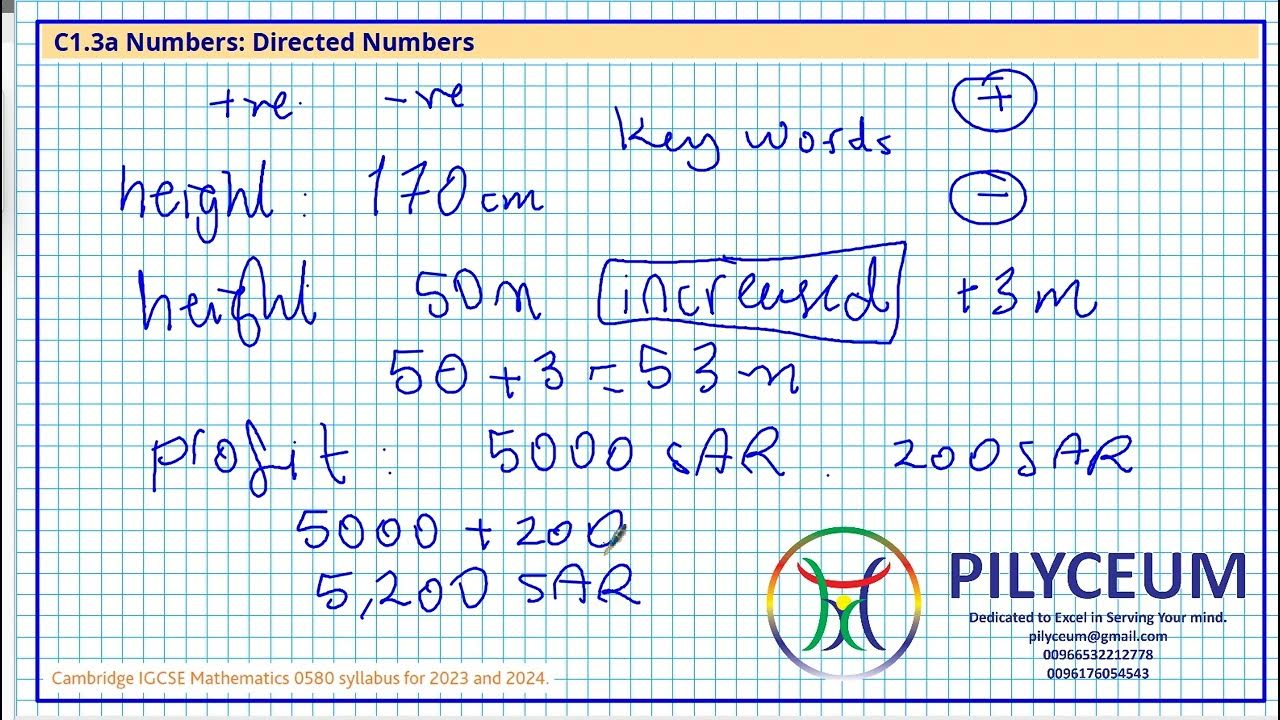 C1.3a Numbers: Directed Numbers
+ve. -ve
Key words
+
−
height: 170 cm
height 50m increased +3 m
50 + 3 = 53 m
profit: 5000 SAR. 200 SAR
5000 + 200
5,200 SAR
PILYCEUM
Dedicated to Excel in Serving Your mind.
pilyceum@gmail.com
00966532212778
0096176054543
Cambridge IGCSE Mathematics 0580 syllabus for 2023 and 2024.